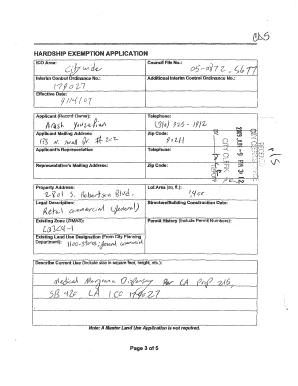 CDS
HARDSHIP EXEMPTION APPLICATION
ICO Area:
City wide
Council File No.:
05-0872, S677
Interim Control Ordinance No.:
179027
Additional Interim Control Ordinance No.:
Effective Date:
9/14/07
Applicant (Record Owner):
Arash
Telephone:
(310) 925-1812
Applicant Mailing Address:
# 202
Zip Code:
90211
Applicant's Representative
Telephone:
Representative's Mailing Address:
Zip Code:
CITY CLERK
Property Address:
2801 S. Robertson Blvd.
Lot Area (sq. ft.):
1400
Legal Description:
Retail commercial (general)
Structure/Building Construction Date:
Existing Zone (ZIMAS):
Permit History (Include Permit Numbers):
Existing Land Use Designation (From City Planning
Department):
1100-stores, general comm.
Describe Current Use (Include size in square feet, height, etc.):
Medical Marijuana Dispensary Per CA Prop 215,
SB 420, LA ICO 179027
Note: A Master Land Use Application is not required.
Page 3 of 5